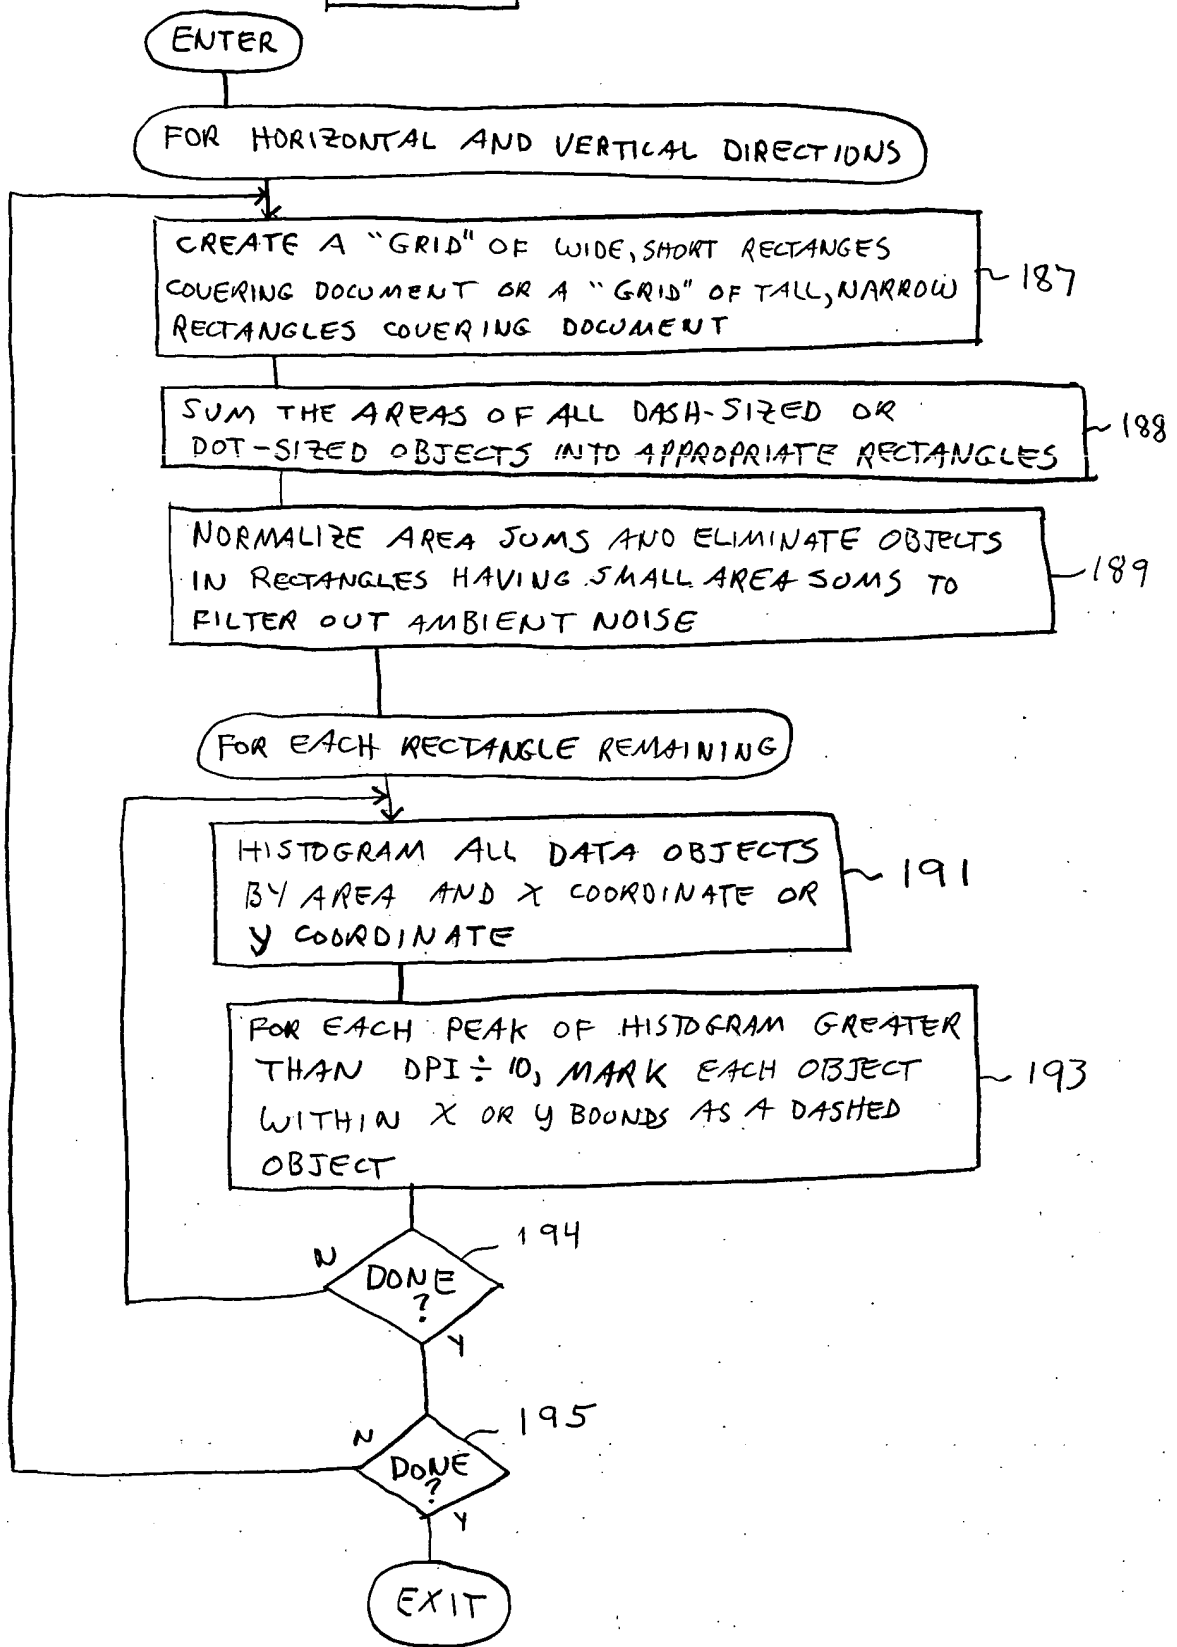 ENTER
FOR HORIZONTAL AND VERTICAL DIRECTIONS
CREATE A "GRID" OF WIDE, SHORT RECTANGES
COVERING DOCUMENT OR A "GRID" OF TALL, NARROW
RECTANGLES COVERING DOCUMENT
187
SUM THE AREAS OF ALL DASH-SIZED OR
DOT-SIZED OBJECTS INTO APPROPRIATE RECTANGLES
188
NORMALIZE AREA SUMS AND ELIMINATE OBJECTS
IN RECTANGLES HAVING SMALL AREA SUMS TO
FILTER OUT AMBIENT NOISE
189
FOR EACH RECTANGLE REMAINING
HISTOGRAM ALL DATA OBJECTS
BY AREA AND X COORDINATE OR
Y COORDINATE
191
FOR EACH PEAK OF HISTOGRAM GREATER
THAN DPI ÷ 10, MARK EACH OBJECT
WITHIN X OR Y BOUNDS AS A DASHED
OBJECT
193
194
N
DONE
?
Y
195
N
DONE
?
Y
EXIT